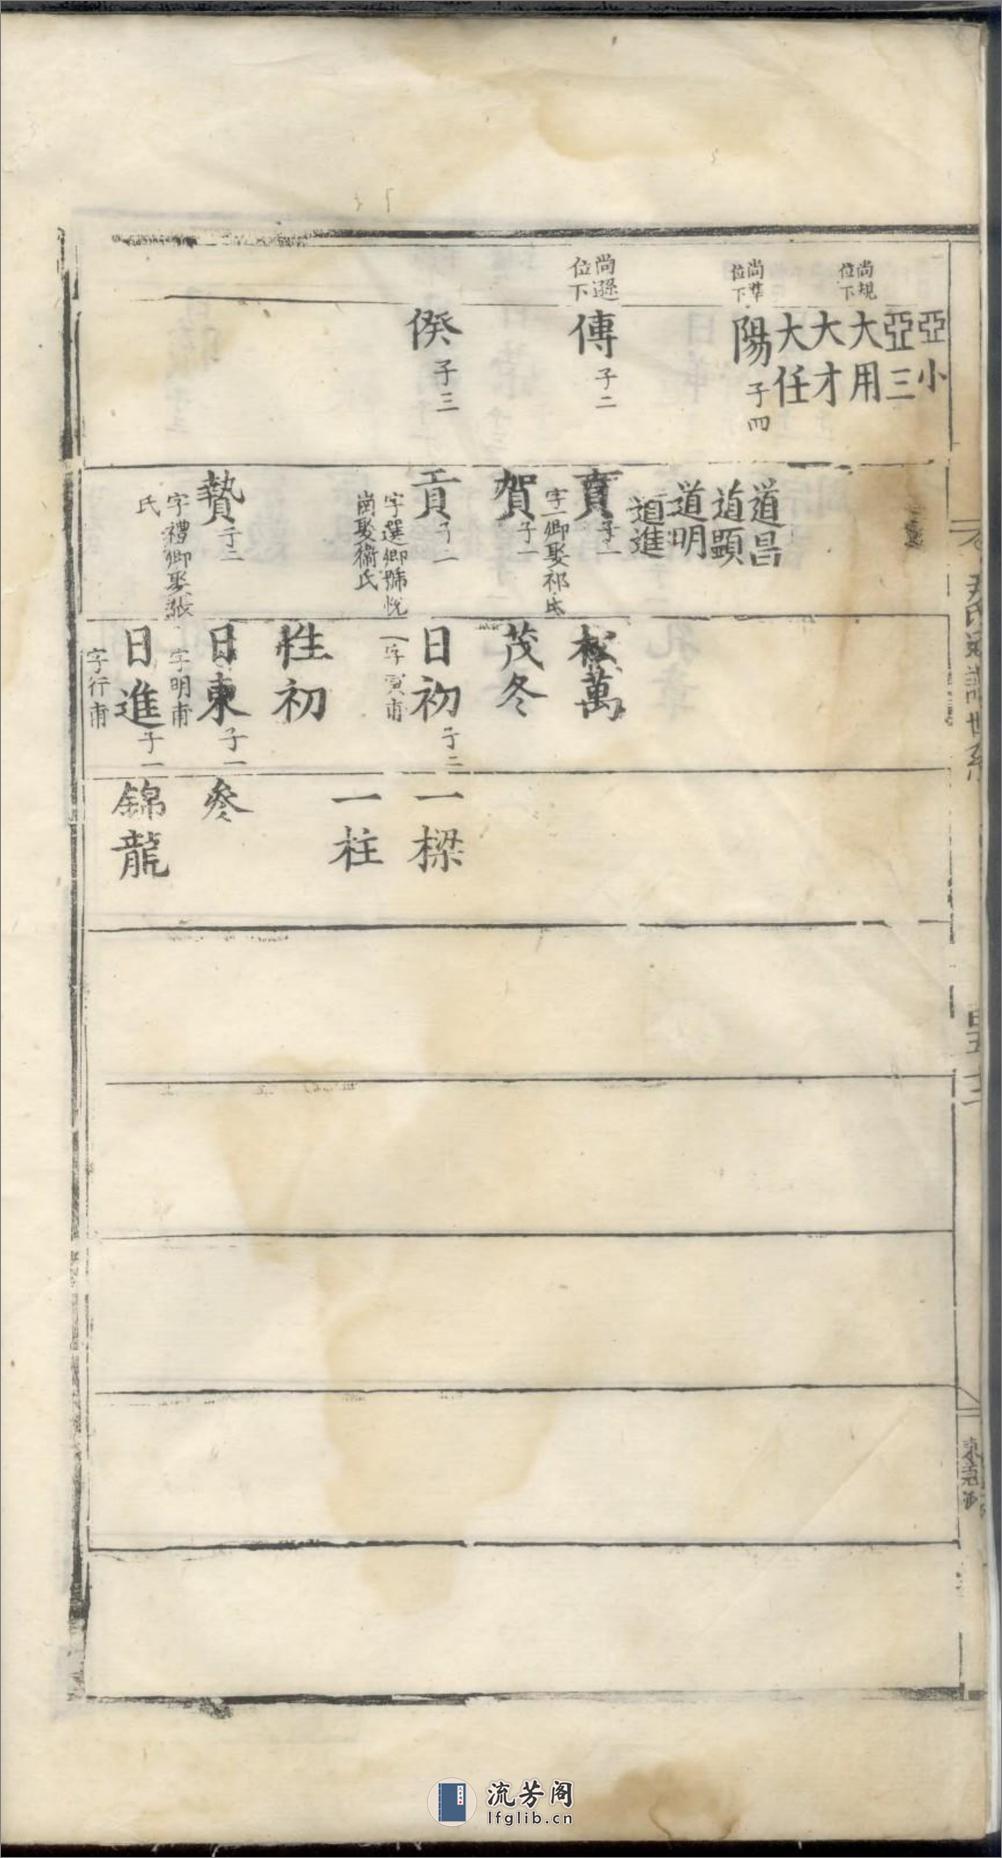 尚規位下
尚準位下
尚遜位下
亞小
亞三
大用
大才
大任
陽 子四
傳 子二
傒 子三
道昌
道顯
道明
道進
賁 子一
字一卿娶祁氏
賀 子一
貢 子二
字選卿號悅
崗娶衞氏
贄 子二
字禮卿娶張
氏
松萬
茂冬
日初 子二
一字賓甫
性初
日東 子一
字明甫
日進 子一
字行甫
一樑
一柱
參
錦龍
尹氏通譜世系
流芳阁
lfglib.cn